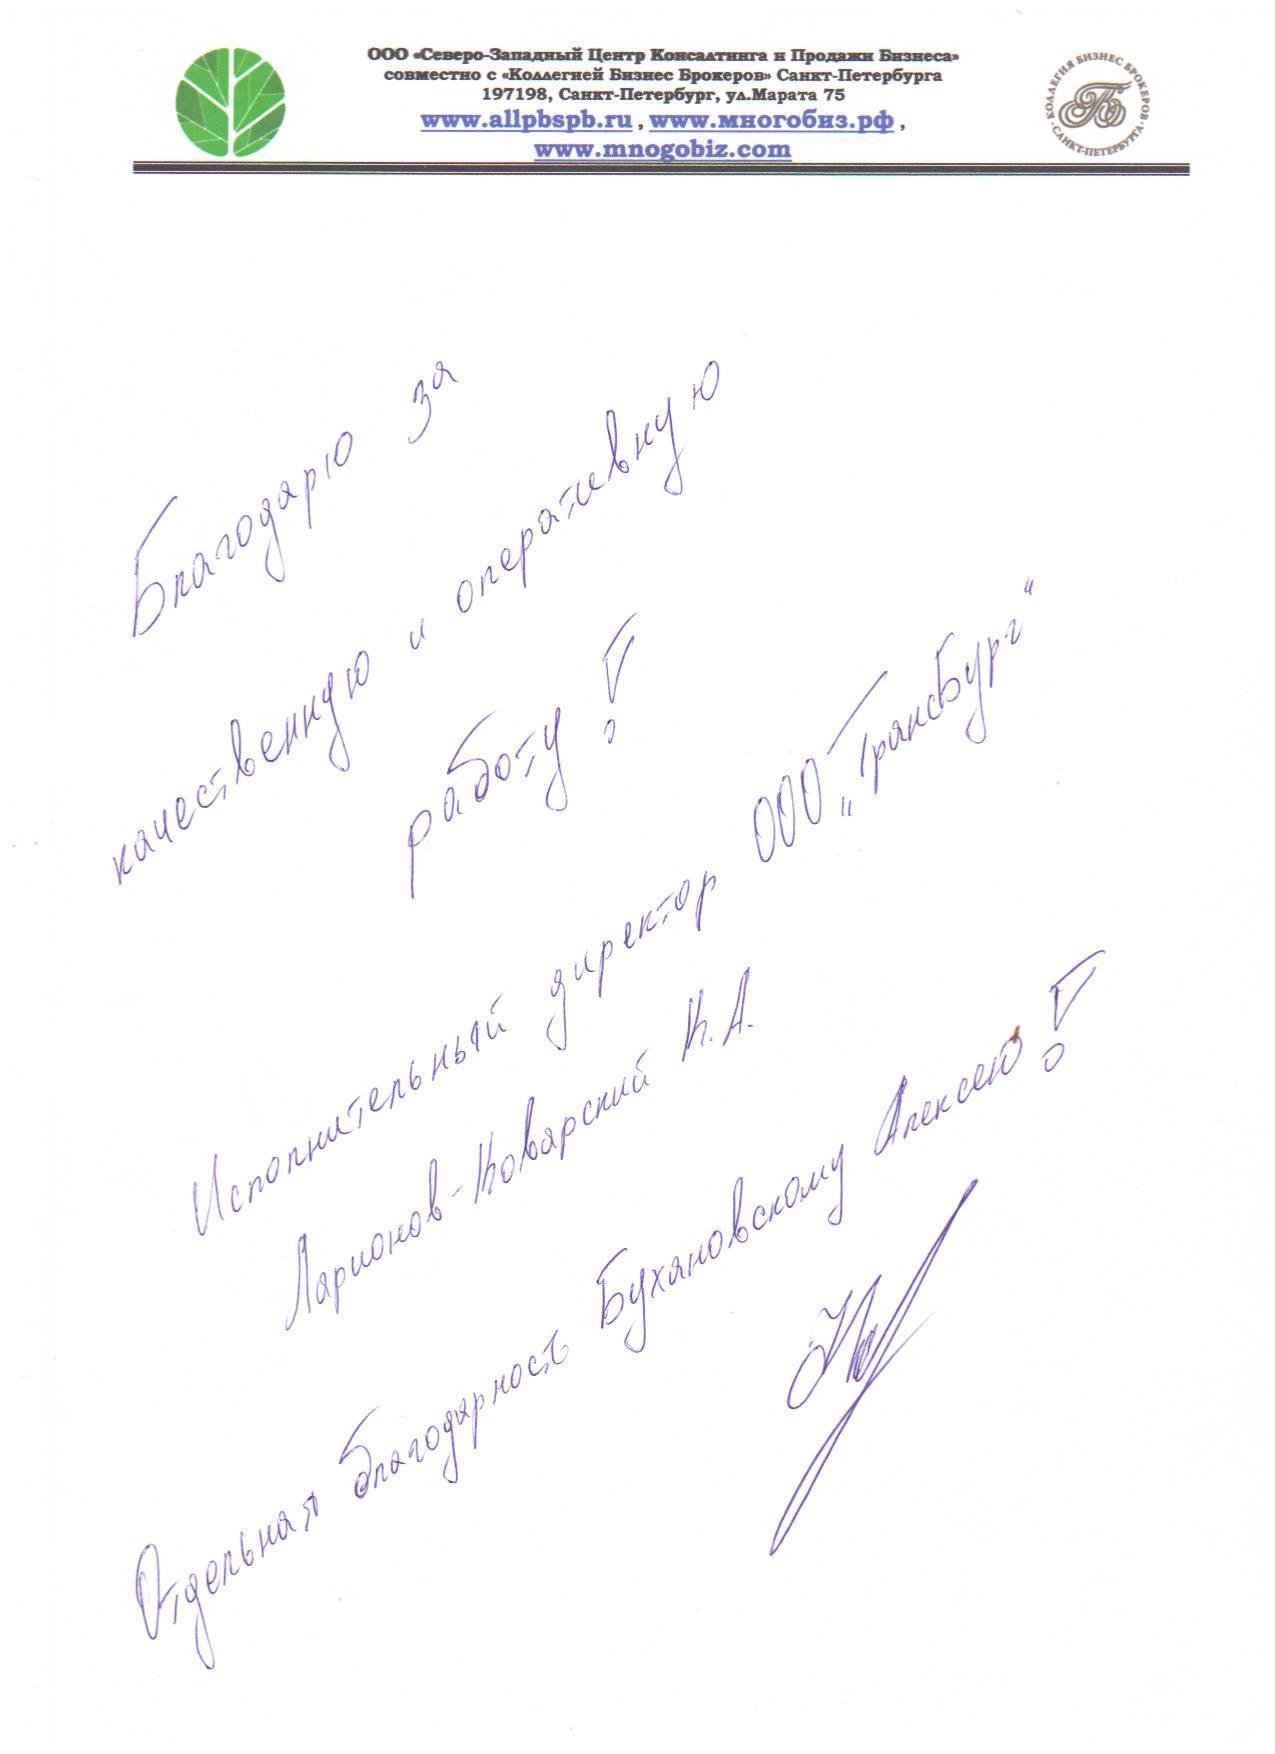 ООО «Северо-Западный Центр Консалтинга и Продажи Бизнеса»
совместно с «Коллегией Бизнес Брокеров» Санкт-Петербурга
197198, Санкт-Петербург, ул.Марата 75
www.allpbspb.ru , www.многобиз.рф ,
www.mnogobiz.com
КОЛЛЕГИЯ БИЗНЕС БРОКЕРОВ
•САНКТ-ПЕТЕРБУРГА•
ББ
Благодарю за
качественную и оперативную
работу!
Исполнительный директор ООО „ТрансБург"
Ларионов-Коварский К.А.
Отдельная благодарность Бухановскому Алексею!